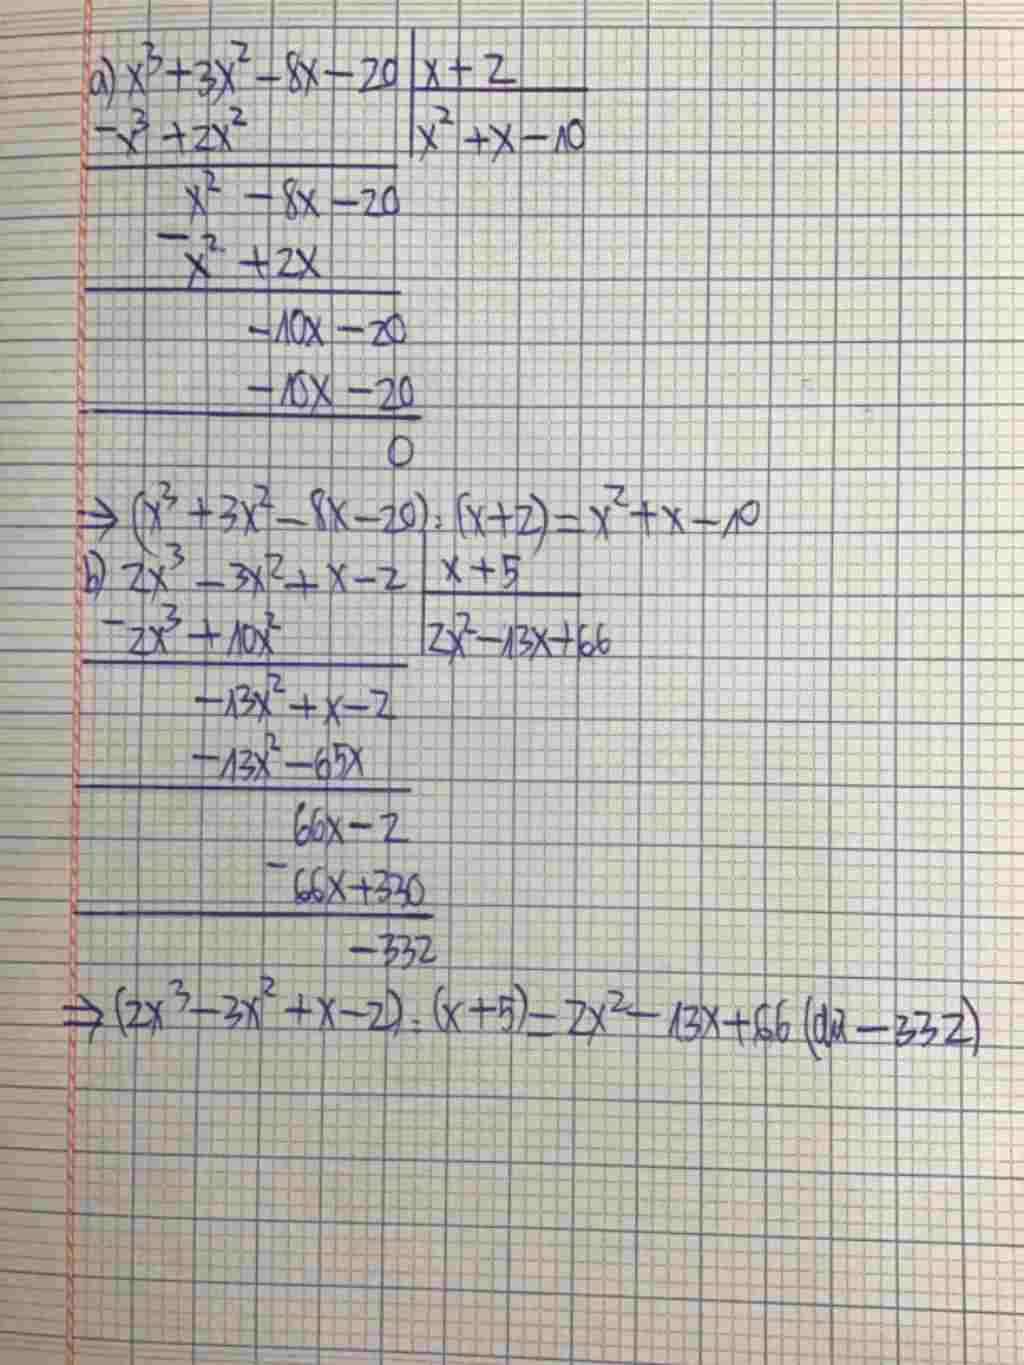 a) x³ + 3x² - 8x - 20 | x + 2
- x³ + 2x² | x² + x - 10
x² - 8x - 20
- x² + 2x
-10x - 20
-10x - 20
0
⇒ (x³ + 3x² - 8x - 20) : (x + 2) = x² + x - 10
b) 2x³ - 3x² + x - 2 | x + 5
- 2x³ + 10x² | 2x² - 13x + 66
-13x² + x - 2
-13x² - 65x
66x - 2
- 66x + 330
-332
⇒ (2x³ - 3x² + x - 2) : (x + 5) = 2x² - 13x + 66 (dư - 332)